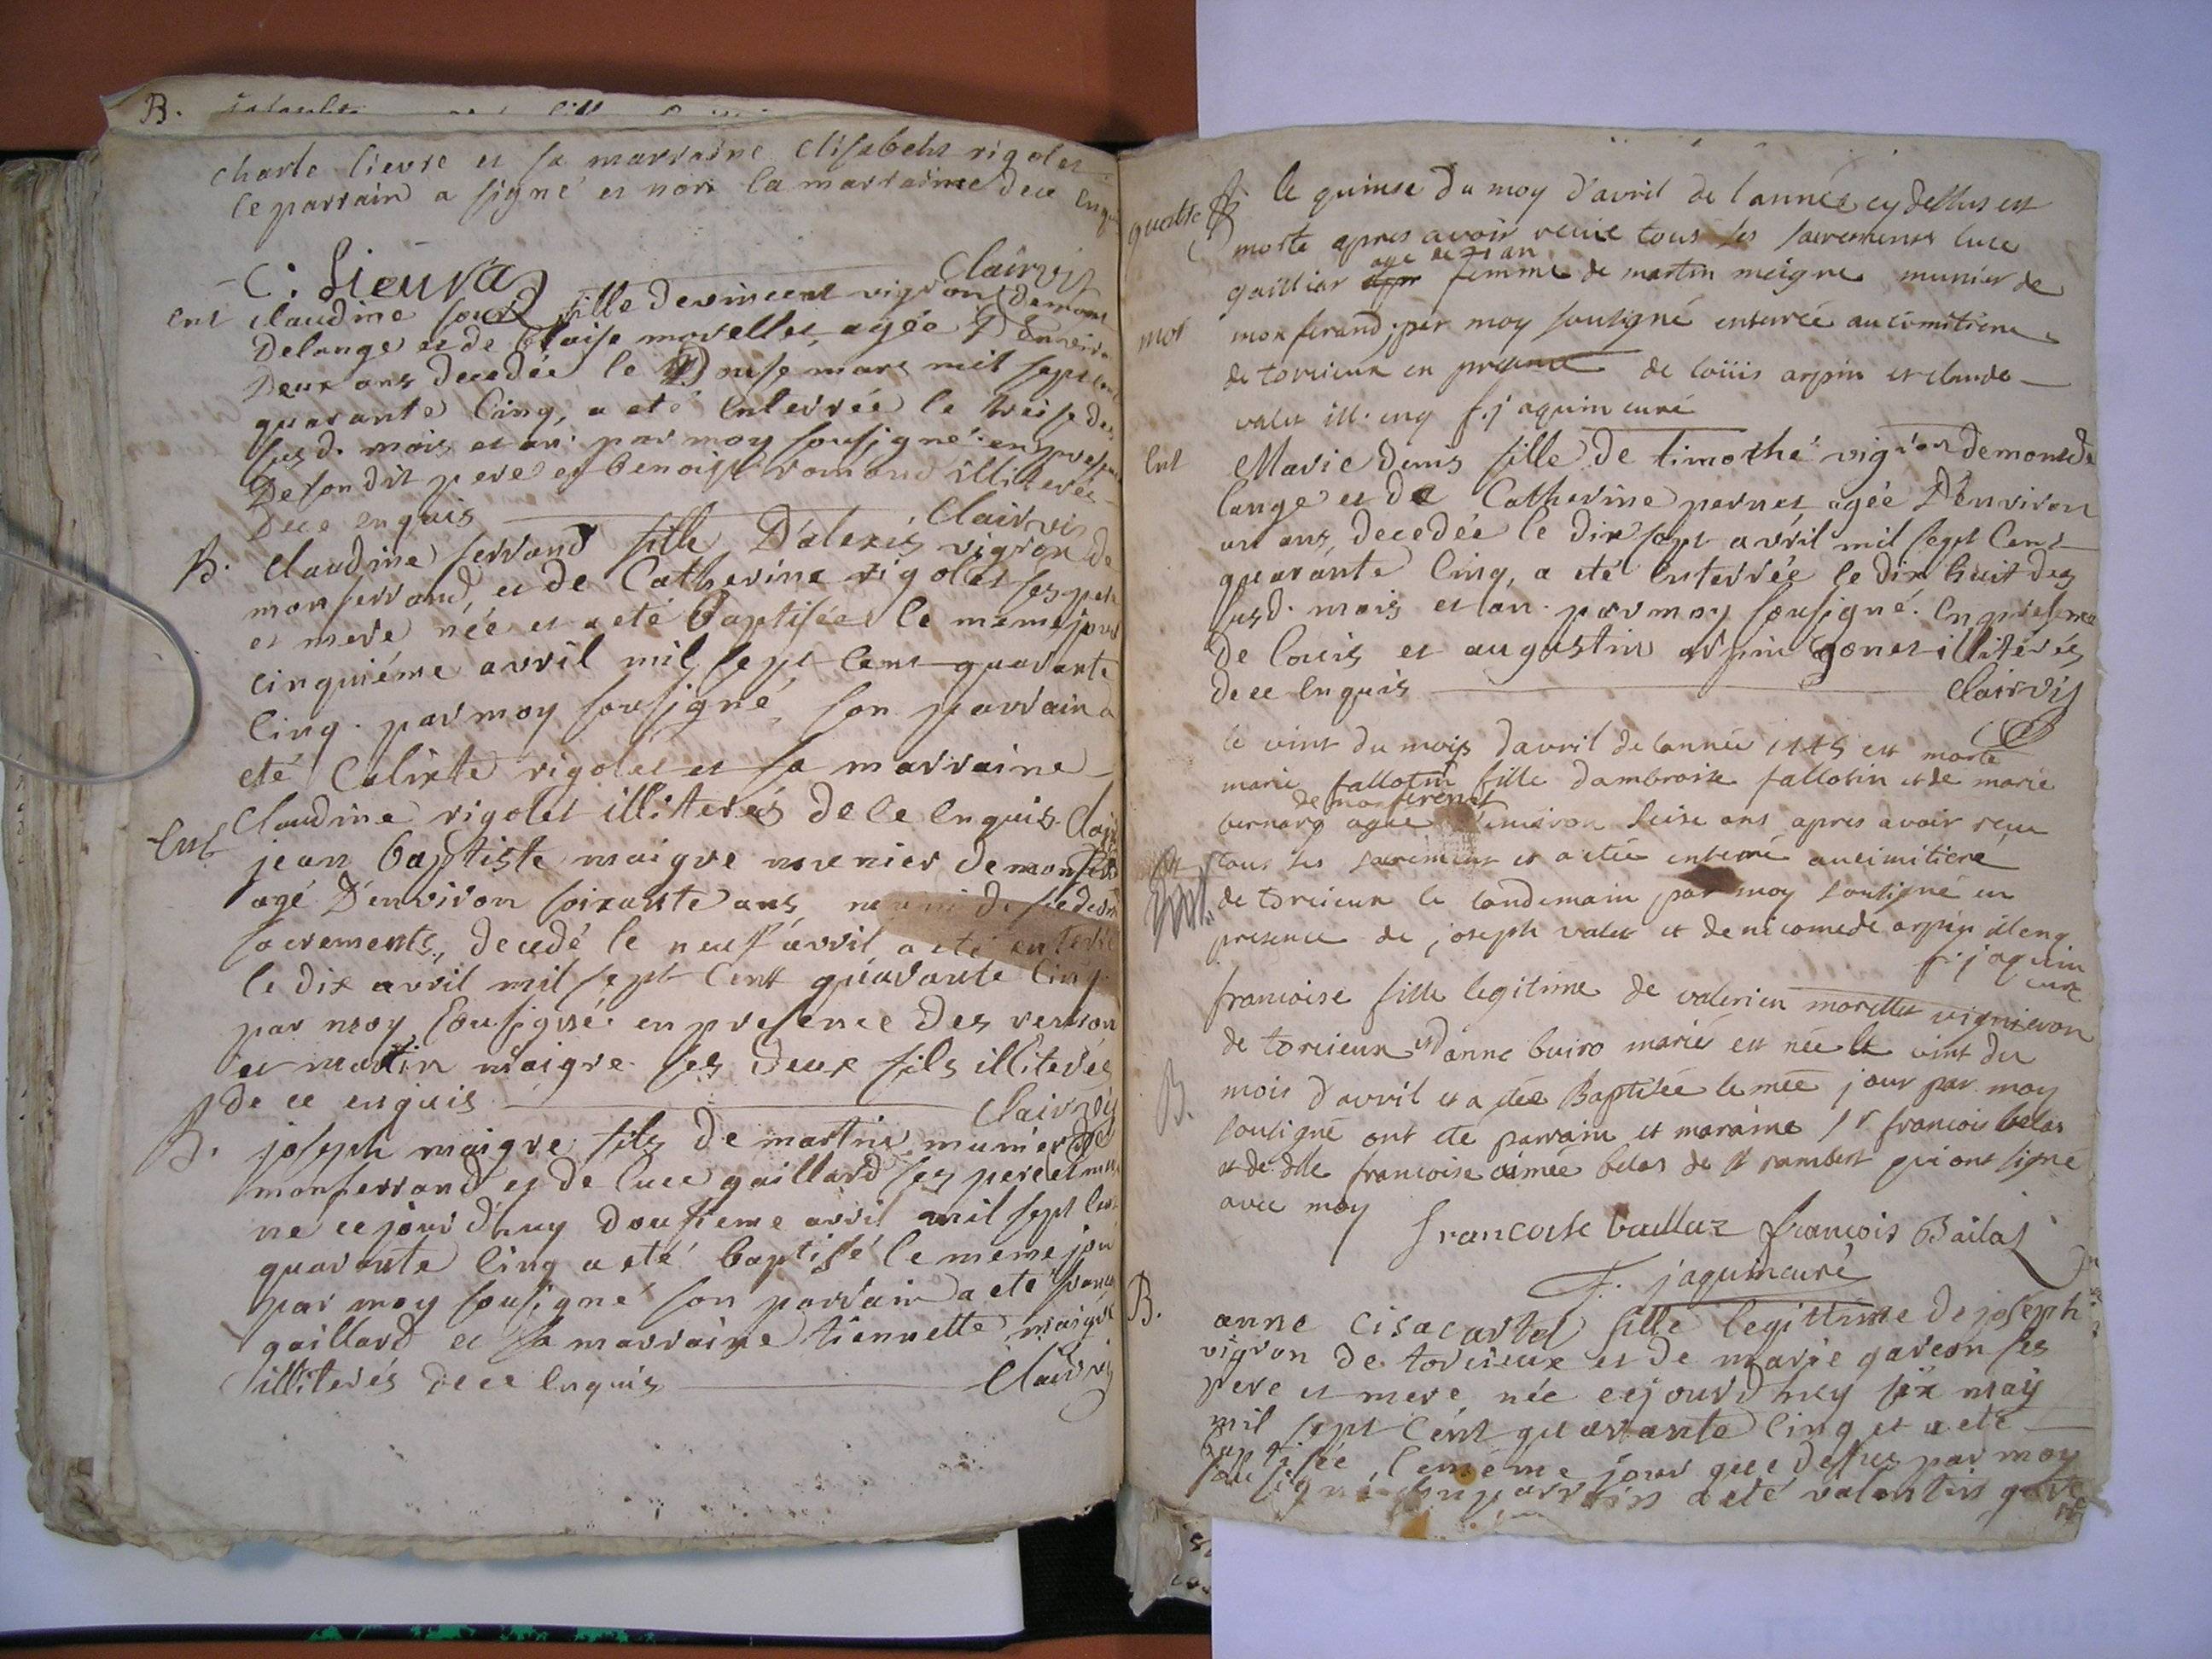 B.
charle lievre et sa marraine elisabeht rigolet
le parrain a signé et non la marraine de ce enq
C: Lieura
Clairvis
Ent claudine fille de vincent vigron de mont
Delange et de blaise morelles, agée D'environ
Deux ans decedée le Douse mars mil sept cent
quarante Cinq, a eté Enterrée le treise des
susd. mois et an. par moy sousigné. en presence
De son dit pere et benoist romand illiterés
De ce enquis Clairvis
B. Claudine ferrand fille D'alexis vigron de
monferrand et de Catherine rigolet ses pere
et mere née et a eté baptisée le meme jour
cinquiéme avril mil sept Cent quarante
Cinq. par moy sousigné, son parrain a
eté Calixte rigolet et sa marraine
Claudine rigolet illiterés de ce enquis. Clair
Ent jean baptiste maigre menier de monferr
agé D'environ soixante ans, muni de ses
sacrements, decedé le neuf avril a eté enterré
le dix avril mil sept Cent quarante Cinq.
par moy sousigné en presence des
et martin maigre ses deux fils illiterés
de ce enquis Clairvis
B. joseph maigre fils de martin munier de
monferrand et de luce gaillard ses pere et mere
ne ce jour d'huy dousieme avril mil sept Cent
quarante Cinq a eté baptisé le meme jour
par moy sousigné son parrain a eté
gaillard et sa marraine tiennette maigre
illiterés de ce enquis Clairvis
le quinse du moy d'avril de l'année cy dessus est
morte apres avoir recue tous les sacrements luce
age de an
gailliar femme de martin meigre munier de
mor monferand; par moy sousigné enterrée au cimitiere
de torcieux en presence de loüis arpin et claude
valet ill. enq f. jaquin curé
Ent Marie denis fille de timothé vigron de mont de
lange et de Catherine pernet agée D'environ
un ans, decedée le dix sept avril mil sept Cent
quarante Cinq, a eté Enterrée le dix huit des
susd. mois et an. par moy sousigné. En presence
De louis et augustin arpin gonet illiterés
de ce Enquis Clairvis
le vint du mois d'avril de l'année 1745 est morte
marie fallotin fille d'ambroise fallotin et de marie
de monferend
bernard agée d'environ seise ans apres avoir recue
tous les sacrement et a etée enterré au cimitiere
de torcieux le landemain par moy sousigné en
presence de joseph valet et de nicomede arpin ill enq
f. jaquin
curé
francoise fille legitime de valerien morellet vignieron
de torcieux et d'anne buiro mariés est née le vint du
B. mois d'avril et a etée Baptisée le mee jour par moy
sousigné ont ete parrain et maraine sr francois belas
et de dlle francoise aimée belas de st rambert qui ont signé
avec moy
francoise baillaz françois Bailas
f. jaquin curé
B. anne cisacartel fille legittime de joseph
vigron de torcieux et de marie garcon ses
pere et mere, née cejourd'huy six may
mil sept Cent quarante Cinq et a eté
baptisée, le même jour que dessus par moy
sousigné son parrain a eté valentin